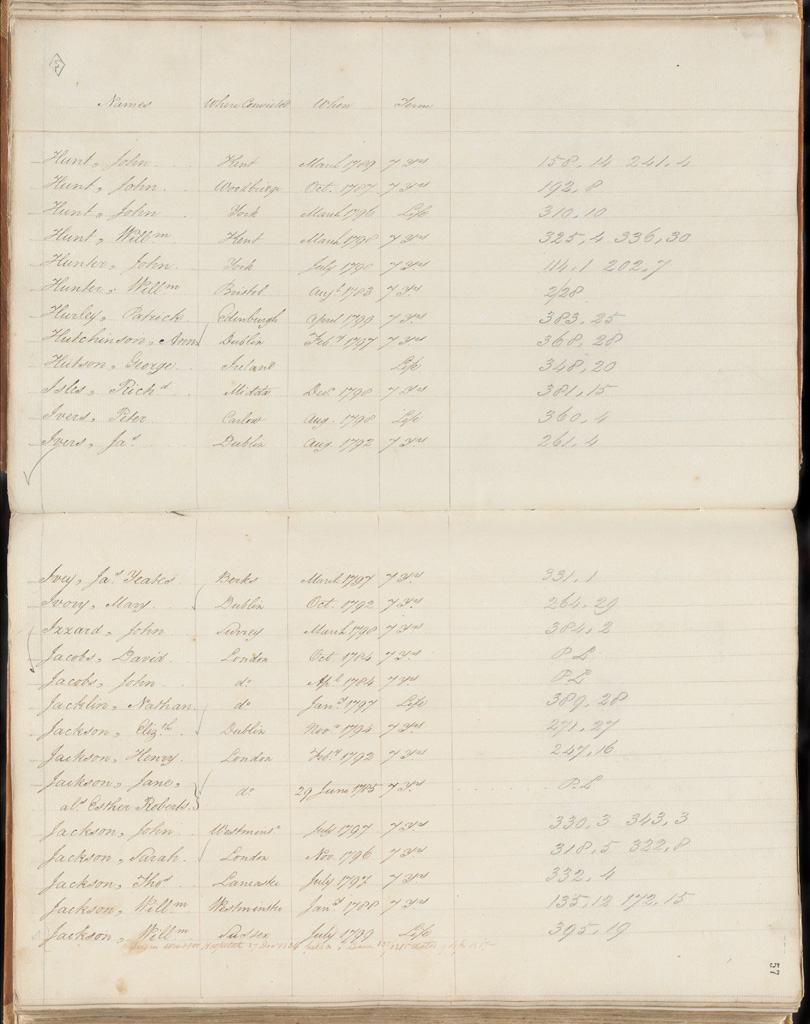 Names Where Convicted When Term
Hunt, John Kent March 1789 7 Yrs 158,14 241,4
Hunt, John Woodbridge Oct. 1787 7 Yrs 192,8
Hunt, John York March 1796 Life 310,10
Hunt, Willm Kent March 1798 7 Yrs 325,4 336,30
Hunter, John York July 1790 7 Yrs 114,1 202,7
Hunter, Willm Bristol Augt 1783 7 Yrs 2/28
Hurley, Patrick Edinburgh April 1799 7 Yrs 383,25
Hutchinson, Ann Dublin Feby 1797 7 Yrs 368,28
Hutson, George Ireland Life 348,20
Isles, Richd Middx Decr 1798 7 Yrs 381,15
Ivers, Peter Carlow Aug. 1798 Life 360,4
Ivers, Jas Dublin Aug. 1792 7 Yrs 261,4
Ivey, Jas Yeates Berks March 1797 7 Yrs 331,1
Ivory, Mary Dublin Oct. 1792 7 Yrs 264,29
Izzard, John Surrey March 1798 7 Yrs 384,2
Jacobs, David London Oct 1784 7 Yrs P.L
Jacobs, John do Apl 1784 7 Yrs P.L
Jacklin, Nathan do Jany 1797 Life 389,28
Jackson, Elizth Dublin Novr 1794 7 Yrs 271,27
Jackson, Henry London Feby 1792 7 Yrs 247,16
Jackson, Jane,
als Esther Roberts do 29 June 1785 7 Yrs P.L
Jackson, John Westminr July 1797 7 Yrs 330,3 343,3
Jackson, Sarah London Nov. 1796 7 Yrs 318,5 322,8
Jackson, Thos Lancaster July 1797 7 Yrs 332,4
Jackson, Willm Westminster Jany 1788 7 Yrs 135,12 172,15
Jackson, Willm Sussex July 1799 Life 395,19
57